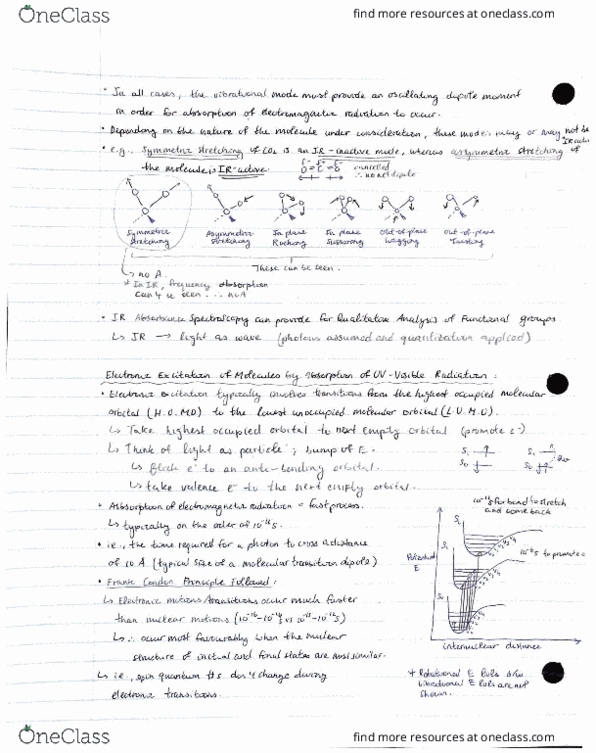 OneClass
find more resources at oneclass.com
• In all cases, the vibrational mode must provide an oscillating dipole moment
in order for absorption of electromagnetic radiation to occur.
• Depending on the nature of the molecule under consideration, these modes may or may not be
IR active
• e.g., Symmetric stretching of CO2 is an IR-inactive mode, whereas asymmetric stretching of
the molecule is IR-active.
cancelled
∴ no net dipole
Symmetric Stretching
Asymmetric Stretching
In plane Rocking
In plane Scissoring
Out-of-plane Wagging
Out-of-plane Twisting
These can be seen.
↳ no A.
* In IR, frequency absorption
can't be seen ∴ no A
• IR Absorbance Spectroscopy can provide for Qualitative Analysis of Functional groups
↳ IR → light as wave (photons assumed and quantization applied)
Electronic Excitation of Molecules by Absorption of UV-Visible Radiation:
• Electronic excitation typically involves transitions from the highest occupied molecular
orbital (H.O.M.O) to the lowest unoccupied molecular orbital (L.U.M.O).
↳ Take highest occupied orbital to next empty orbital (promote e-)
↳ Think of light as particle; bump of E.
S1
S0
S1
S0
↳ e- to an anti-bonding orbital.
↳ take valence e- to the next empty orbital.
• Absorption of electromagnetic radiation = fast process.
↳ typically on the order of 10-16 s.
• i.e., the time required for a photon to cross a distance
of 10 Å (typical size of a molecular transition dipole)
• Frank Condon Principle Followed:
↳ Electronic motions/transitions occur much faster
than nuclear motions
↳ ∴ occur most favourably when the nuclear
structure of initial and final states are most similar.
↳ i.e., spin quantum #s don't change during
electronic transitions.
for bond to stretch
and come back
to promote e-
Potential
E
S0
internuclear distance
* Rotational E lvls
vibrational E lvls are not
shown.
OneClass
find more resources at oneclass.com